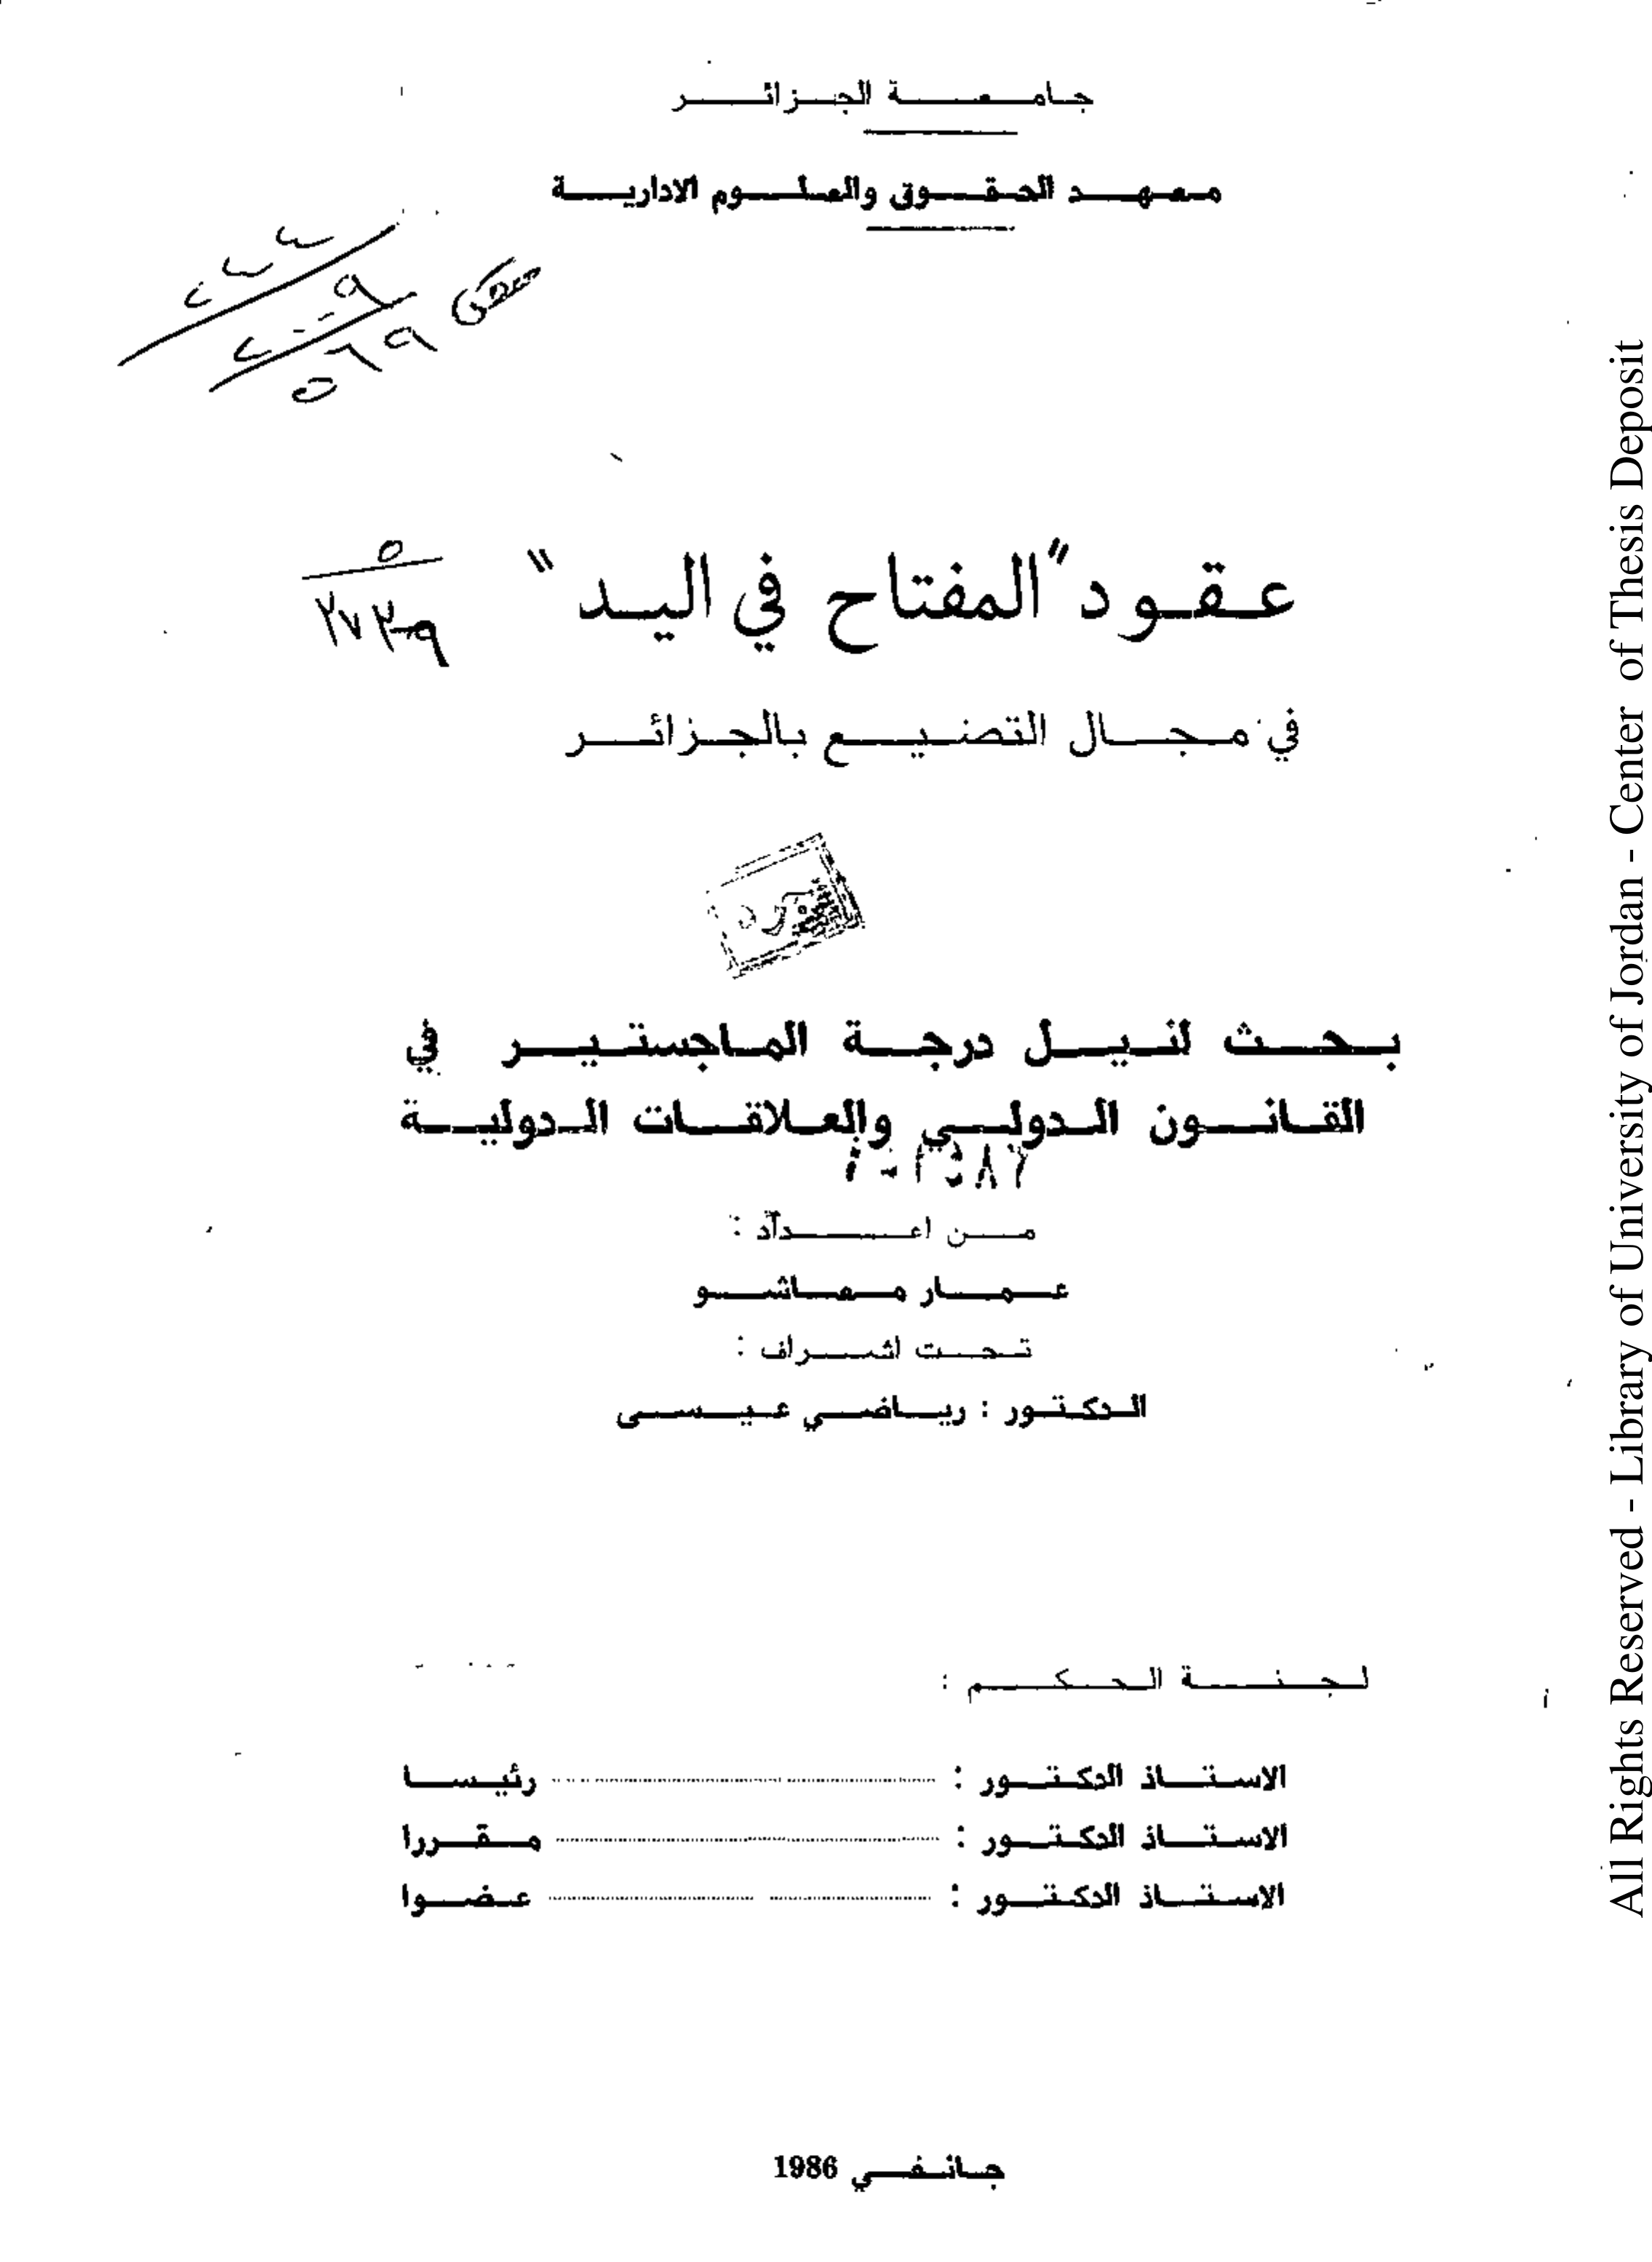 جامعة الجزائر
معهد الحقوق والعلوم الادارية
عقود "المفتاح في اليد"
٥
٢٧٣٩
في مجال التصنيع بالجزائر
بحث لنيل درجة الماجستير في
القانون الدولي والعلاقات الدولية
من اعداد :
عمار معاشو
تحت اشراف :
الدكتور : رياضي عيسى
لجنة الحكم :
الاستاذ الدكتور : رئيسا
الاستاذ الدكتور : مقررا
الاستاذ الدكتور : عضوا
جانفي 1986
All Rights Reserved - Library of University of Jordan - Center of Thesis Deposit